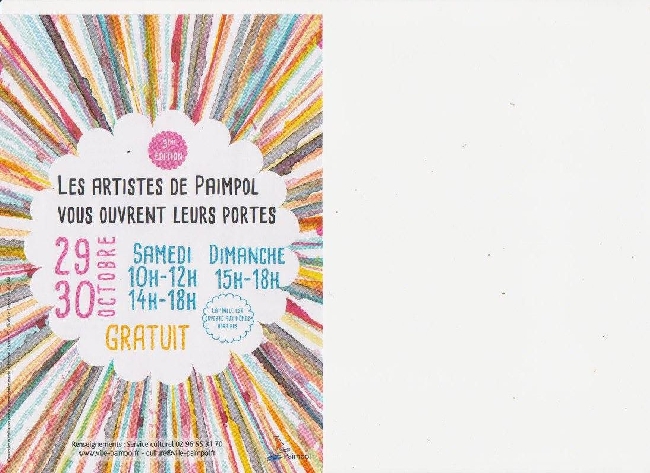 ÉDITION
LES ARTISTES DE PAIMPOL
VOUS OUVRENT LEURS PORTES
29
30
OCTOBRE
SAMEDI
10H-12H
14H-18H
DIMANCHE
15H-18H
GRATUIT
Renseignements : Service culturel 02 96 55 31 70
www.ville-paimpol.fr - culture@ville-paimpol.fr
Paimpol